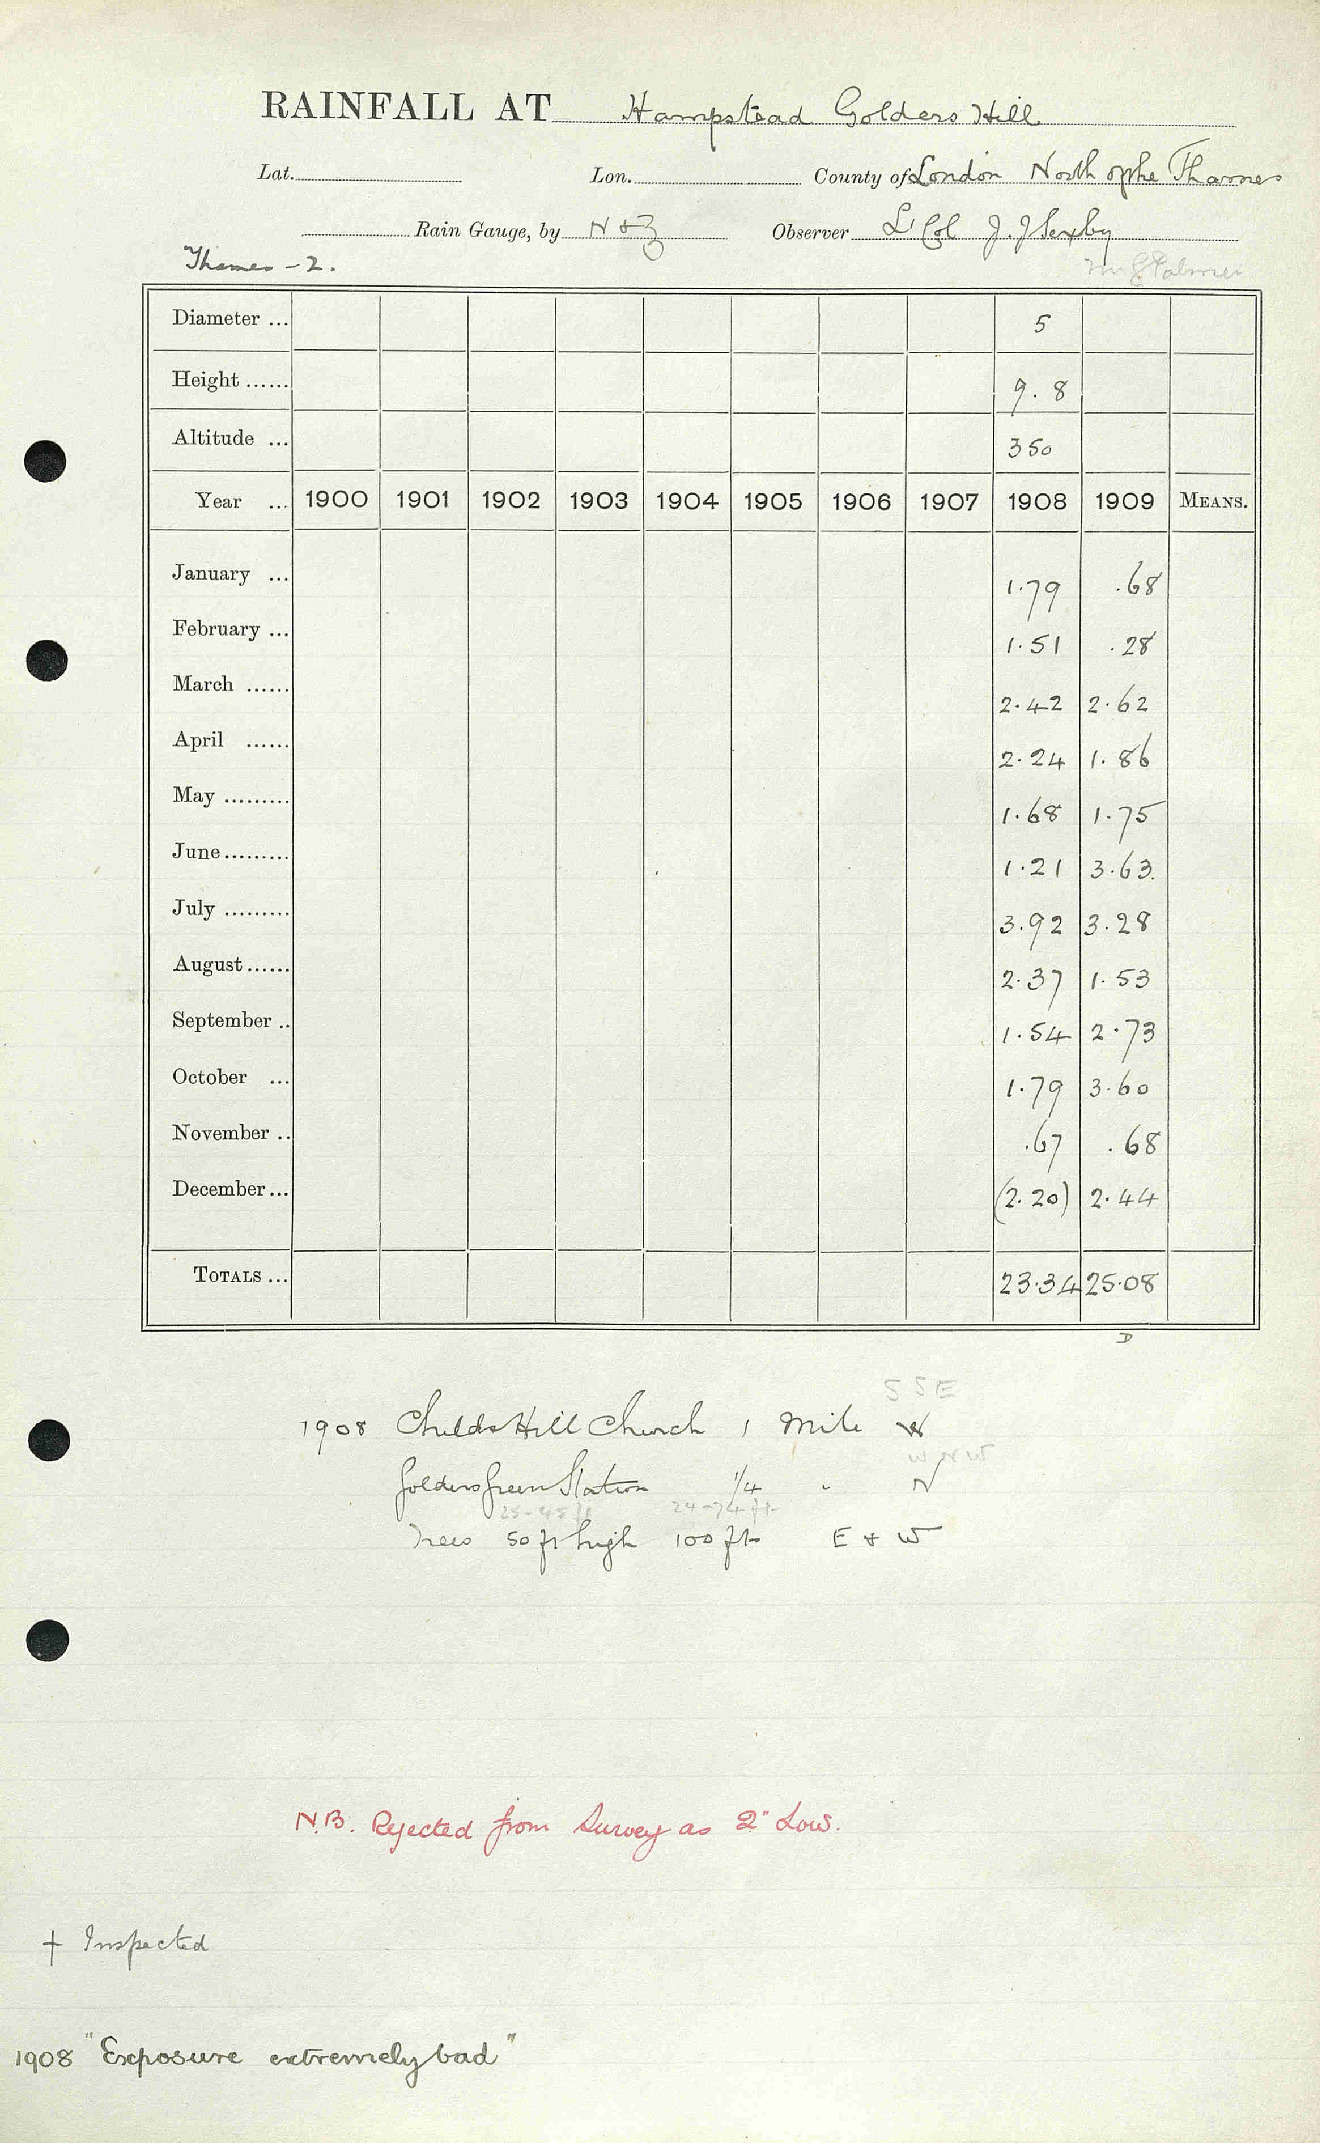 RAINFALL AT Hampstead Golders Hill
Lat. Lon. County of London North of the Thames
Rain Gauge, by N & Z Observer Lt Col J. J Sexby
Thames - 2. Palmer
Diameter ... 5
Height ...... 9. 8
Altitude ... 350
Year ... 1900 1901 1902 1903 1904 1905 1906 1907 1908 1909 MEANS.
January ... 1.79 .68
February ... 1.51 .28
March ...... 2.42 2.62
April ...... 2.24 1.86
May ......... 1.68 1.75
June......... 1.21 3.63
July ......... 3.92 3.28
August...... 2.37 1.53
September .. 1.54 2.73
October ... 1.79 3.60
November .. .67 .68
December... (2.20) 2.44
TOTALS ... 23.34 25.08
D
SSE
1908 Childs Hill Church 1 Mile W
WNW
Golders Green Station 1/4 " N
25-45 ft 24-74 ft
Trees 50 ft high 100 ft E & W
N.B. Rejected from Survey as 2" Low.
† Inspected
1908 "Exposure extremely bad"